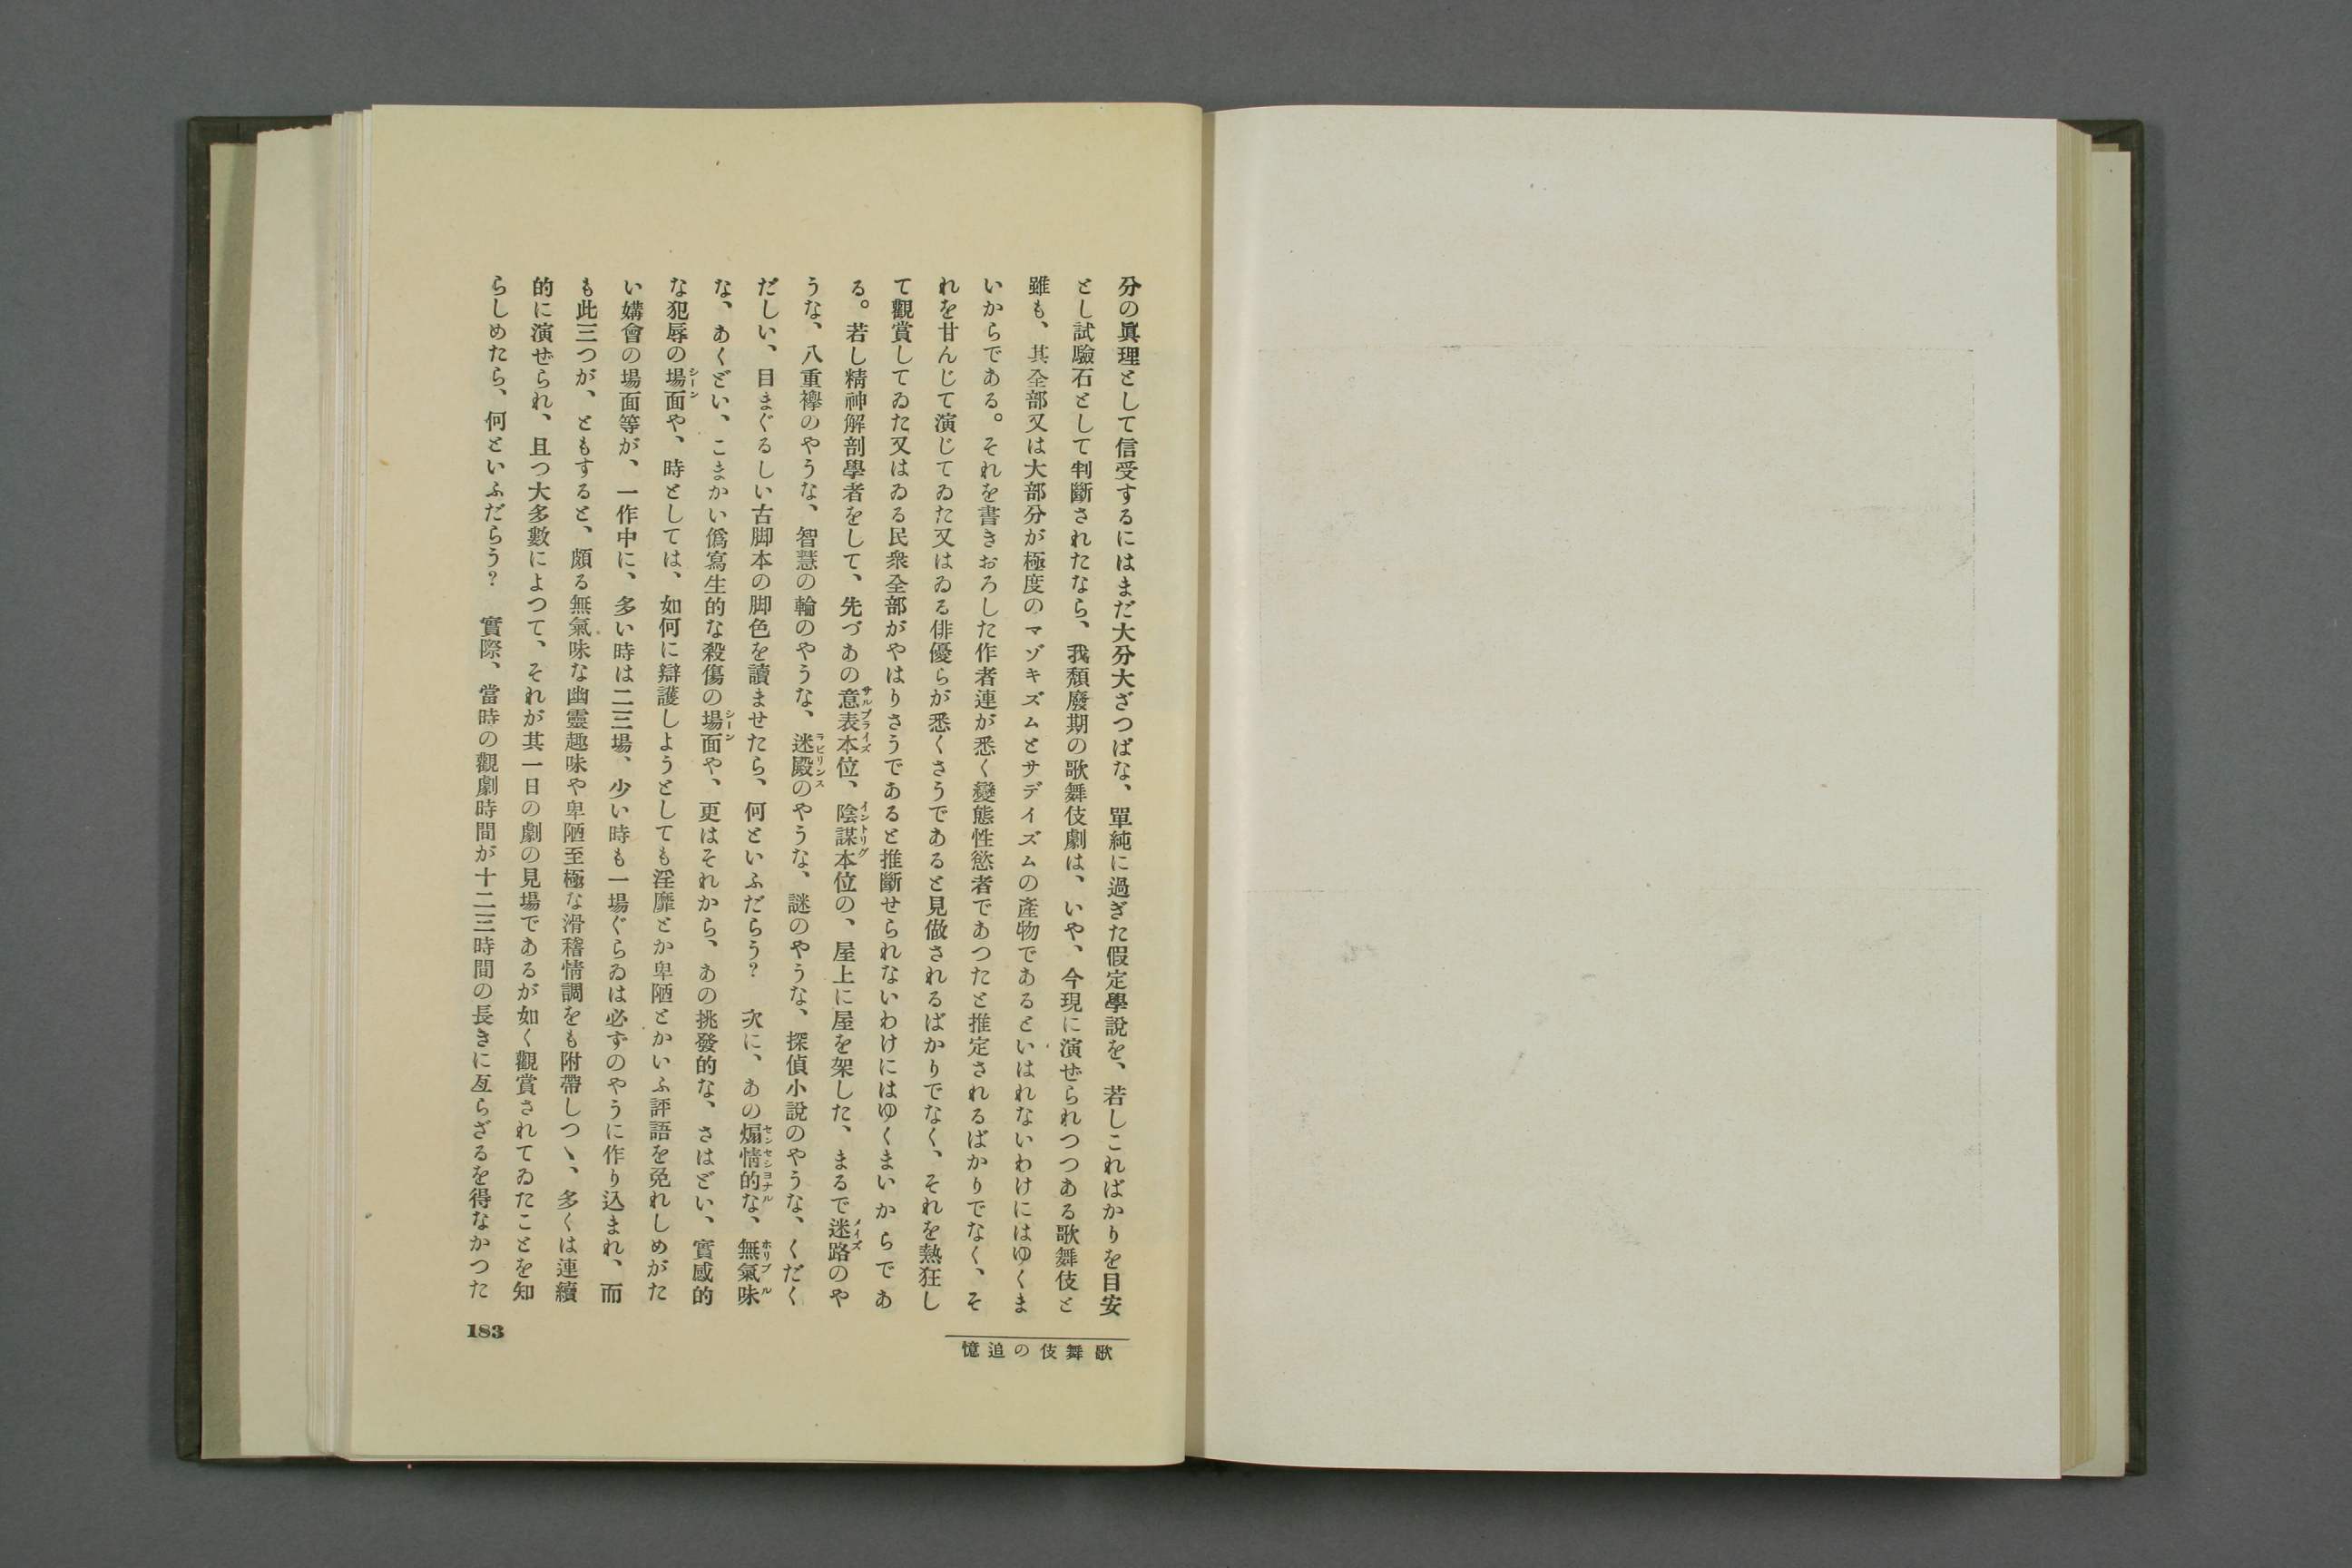 分の眞理として信受するにはまだ大分大ざつぱな、單純に過ぎた假定學說を、若しこればかりを目安
とし試驗石として判斷されたなら、我頽廢期の歌舞伎劇は、いや、今現に演ぜられつつある歌舞伎と
雖も、其全部又は大部分が極度のマゾキズムとサデイズムの產物であるといはれないわけにはゆくま
いからである。それを書きおろした作者連が悉く變態性慾者であつたと推定されるばかりでなく、そ
れを甘んじて演じてゐた又はゐる俳優らが悉くさうであると見做されるばかりでなく、それを熱狂し
て觀賞してゐた又はゐる民衆全部がやはりさうであると推斷せられないわけにはゆくまいからであ
る。若し精神解剖學者をして、先づあの意表本位、陰謀本位の、屋上に屋を架した、まるで迷路のや
サルプライズ イントリグ メイズ
うな、八重襷のやうな、智慧の輪のやうな、迷殿のやうな、謎のやうな、探偵小說のやうな、くだく
ラビリンス
だしい、目まぐるしい古脚本の脚色を讀ませたら、何といふだらう？　次に、あの煽情的な、無氣味
センセシヨナル ホリブル
な、あくどい、こまかい僞寫生的な殺傷の場面や、更はそれから、あの挑發的な、さはどい、實感的
シーン
な犯辱の場面や、時としては、如何に辯護しようとしても淫靡とか卑陋とかいふ評語を免れしめがた
シーン
い媾會の場面等が、一作中に、多い時は二三場、少い時も一場ぐらゐは必ずのやうに作り込まれ、而
も此三つが、ともすると、頗る無氣味な幽靈趣味や卑陋至極な滑稽情調をも附帶しつヽ、多くは連續
的に演ぜられ、且つ大多數によつて、それが其一日の劇の見場であるが如く觀賞されてゐたことを知
らしめたら、何といふだらう？　實際、當時の觀劇時間が十二三時間の長きに亙らざるを得なかつた
歌舞伎の追憶
183